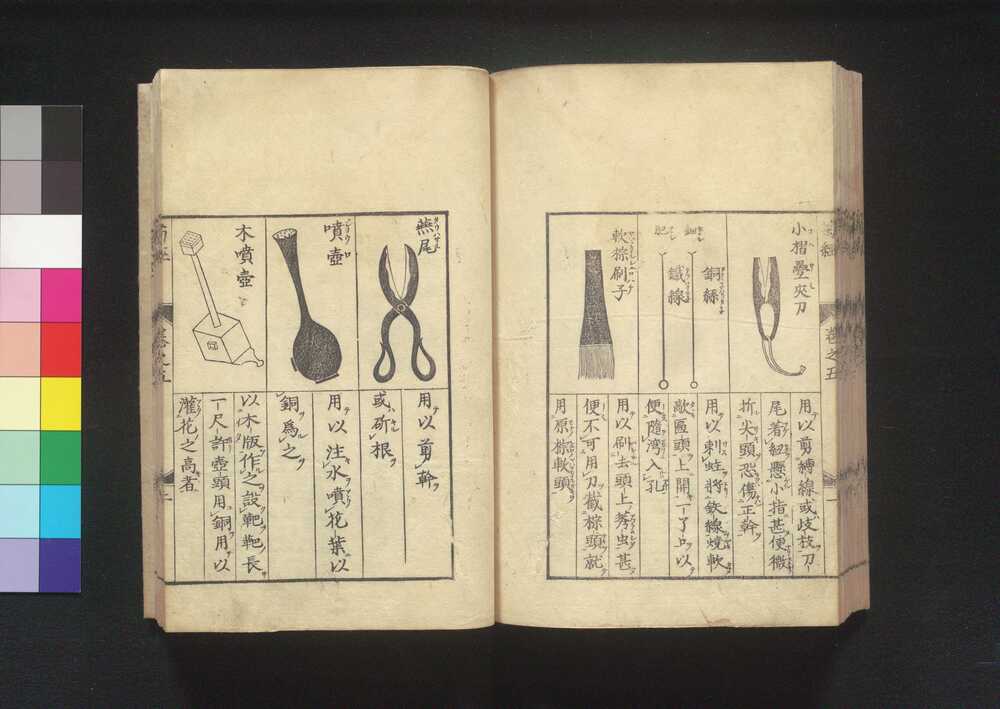 小摺疊夾刀
銅絲
鐵線
軟椶刷子
用以剪縛線或歧技刀
尾著紐懸小指甚便微
折尖頭恐傷正幹
用以刺蛀將鉄線燒軟
敲匾頭上開一了口以
便隨灣入孔
用以刷去頭上莠虫甚
便不可用刀截椶頭就
用原椶軟頭
卷之五
一
燕尾
噴壺
木噴壺
用以剪幹
或斫根
用以注水噴花葉以
銅爲之
以木版作之設靶靶長
一尺許壺頭用銅用以
灌花之高者
卷之五